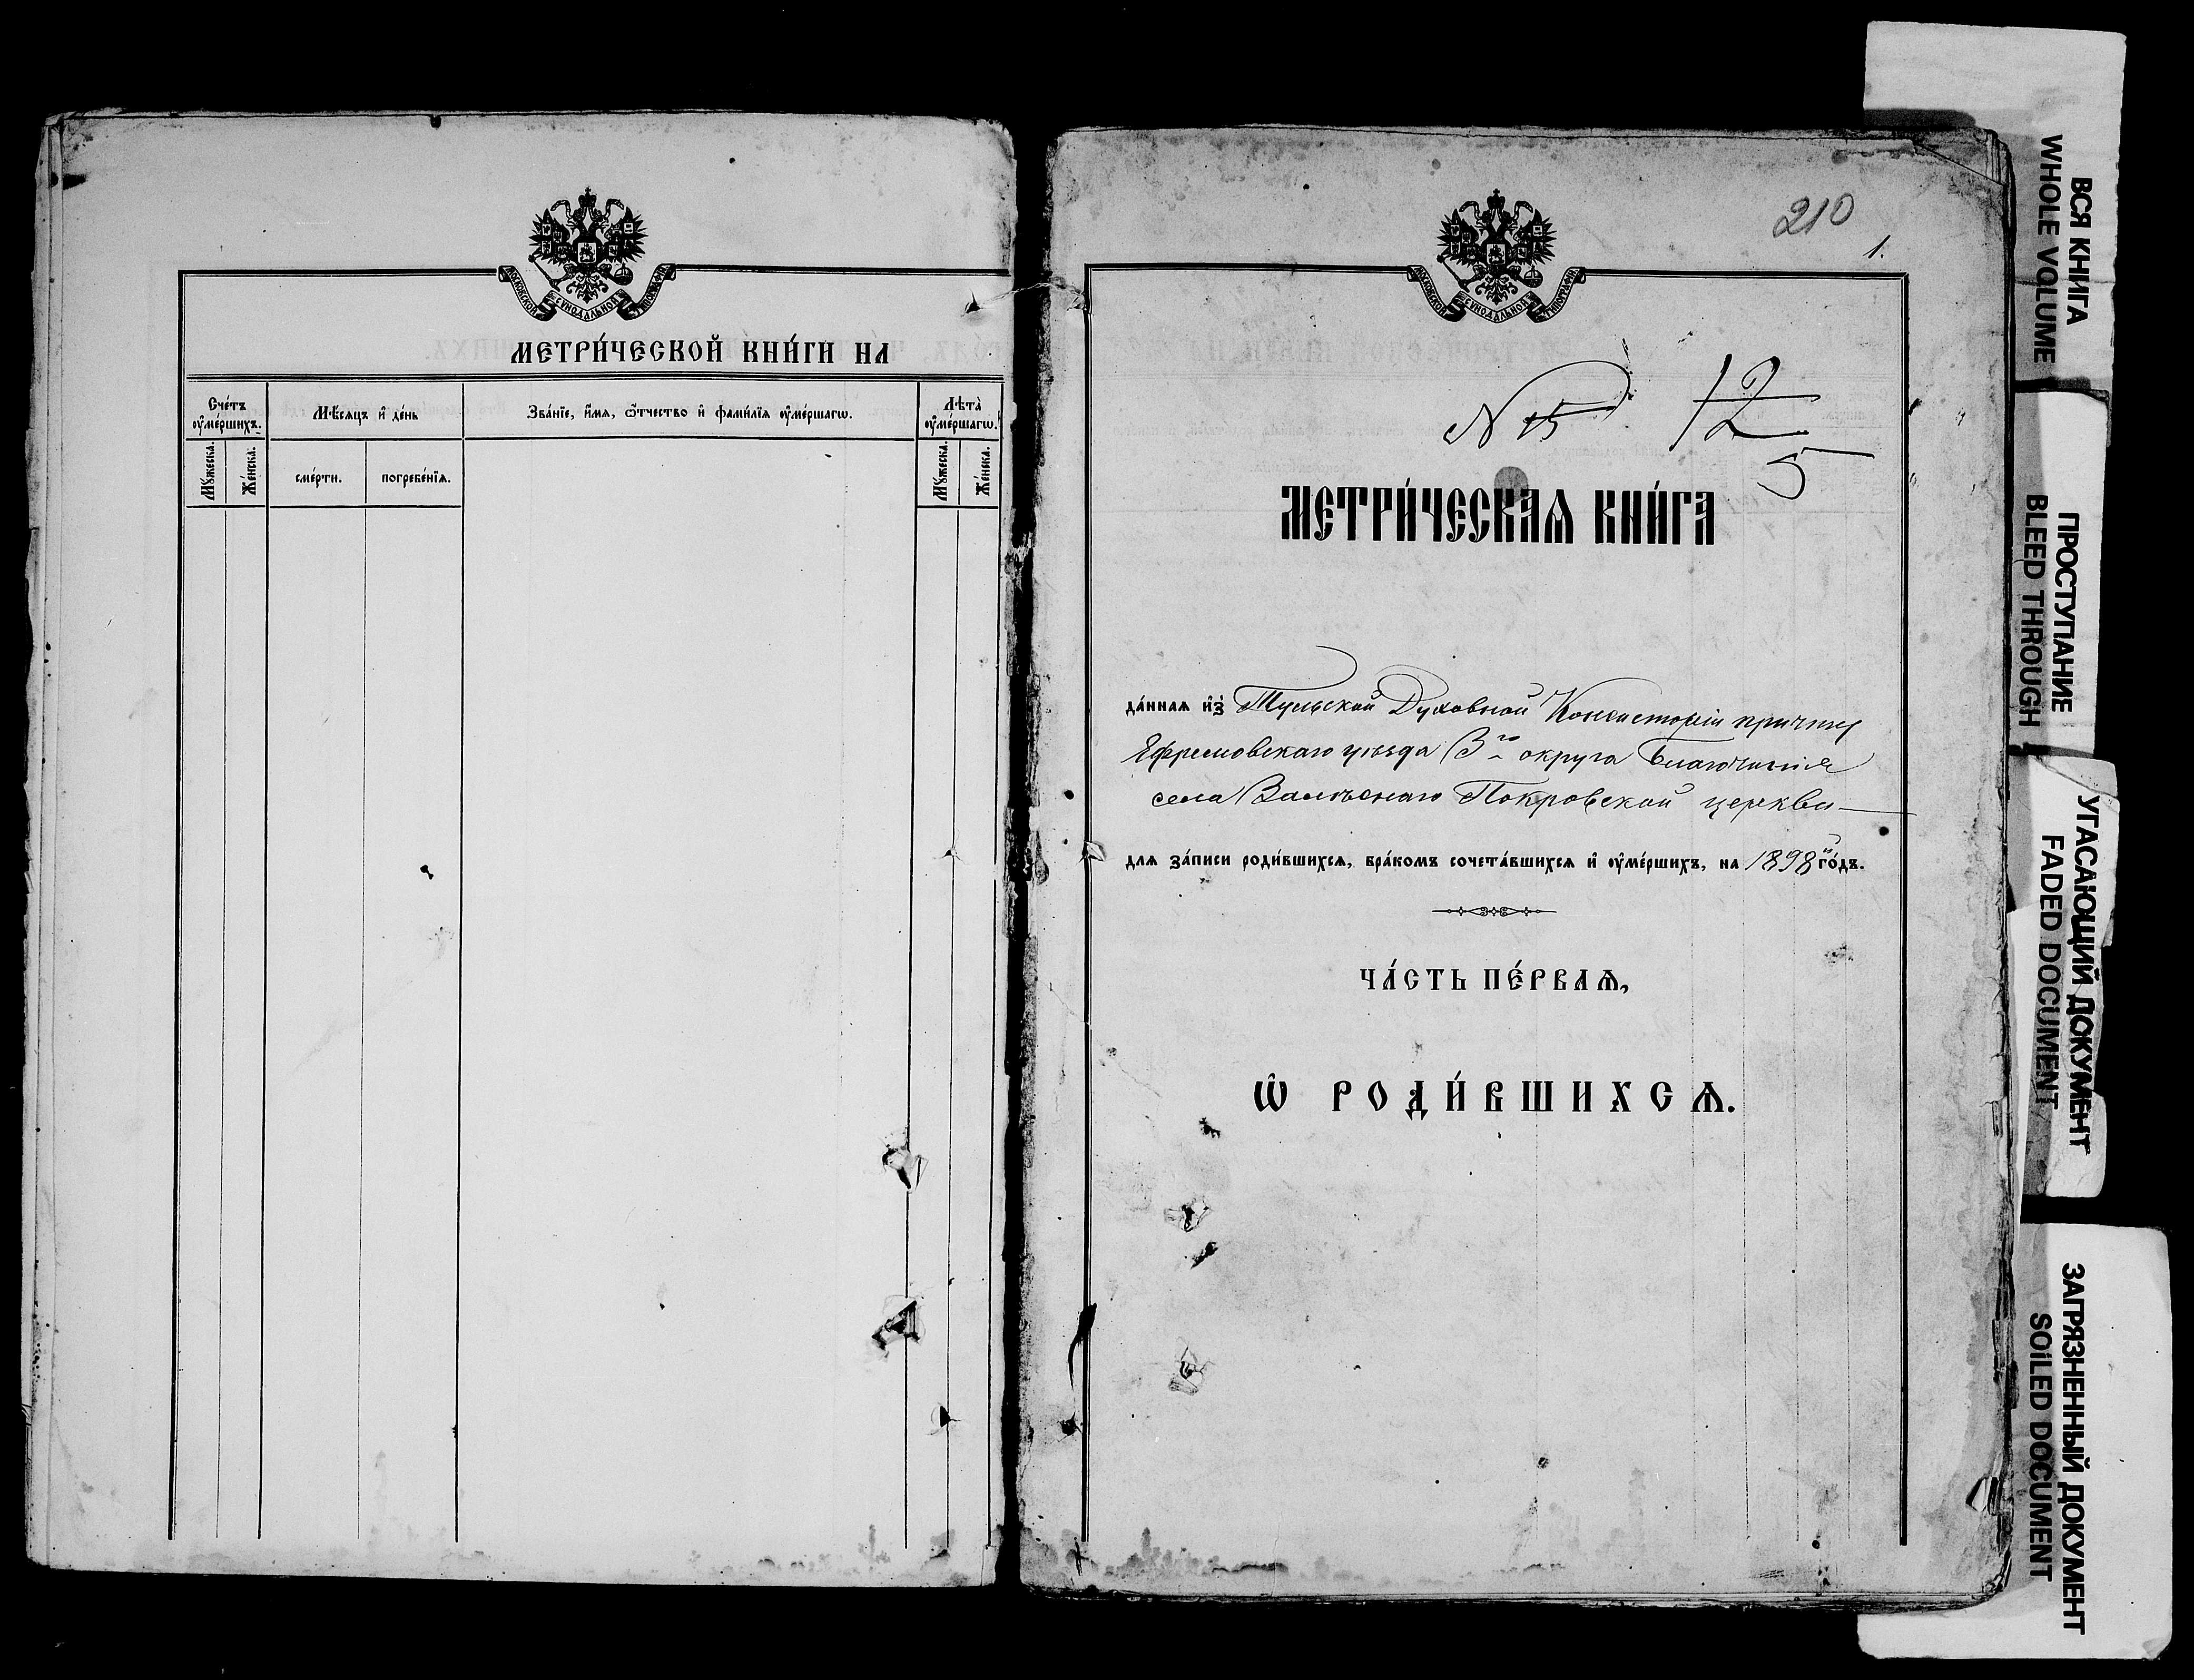 МОСКОВСКОЙ СѴНОДАЛЬНОЙ ТИПОГРАФІИ
МЕТРИ́ЧЕСКОЙ КНИ́ГИ НА
Сче́тъ ᲂу҆ме́ршихъ.
Мѣ́сяцъ и҆ де́нь
Зва́нїе, и҆́мя, ѻ҆́тчество и҆ фами́лїя ᲂу҆ме́ршагѡ.
Лѣ́та ᲂу҆ме́ршагѡ.
Мꙋ́жеска.
Же́нска.
сме́рти.
погребе́нїя.
Мꙋ́жеска.
Же́нска.
210
1.
МОСКОВСКОЙ СѴНОДАЛЬНОЙ ТИПОГРАФІИ
N 15
12
5
МЕТРИ́ЧЕСКАѦ КНИ́ГА
да́нная и҆з̾ Тульской Духовной Консисторіи причту
Ефремовскаго уѣзда 3го округа Благочинія
села Покровской церкви
для за́писи роди́вшихся, бра́комъ сочета́вшихся и҆ ᲂу҆ме́ршихъ, на 1898й го́дъ.
ЧА́СТЬ ПЕ́РВАѦ,
Ѡ҆ РОДИ́ВШИХСѦ.
ВСЯ КНИГА
WHOLE VOLUME
ПРОСТУПАНИЕ
BLEED THROUGH
УГАСАЮЩИЙ ДОКУМЕНТ
FADED DOCUMENT
ЗАГРЯЗНЕННЫЙ ДОКУМЕНТ
SOILED DOCUMENT